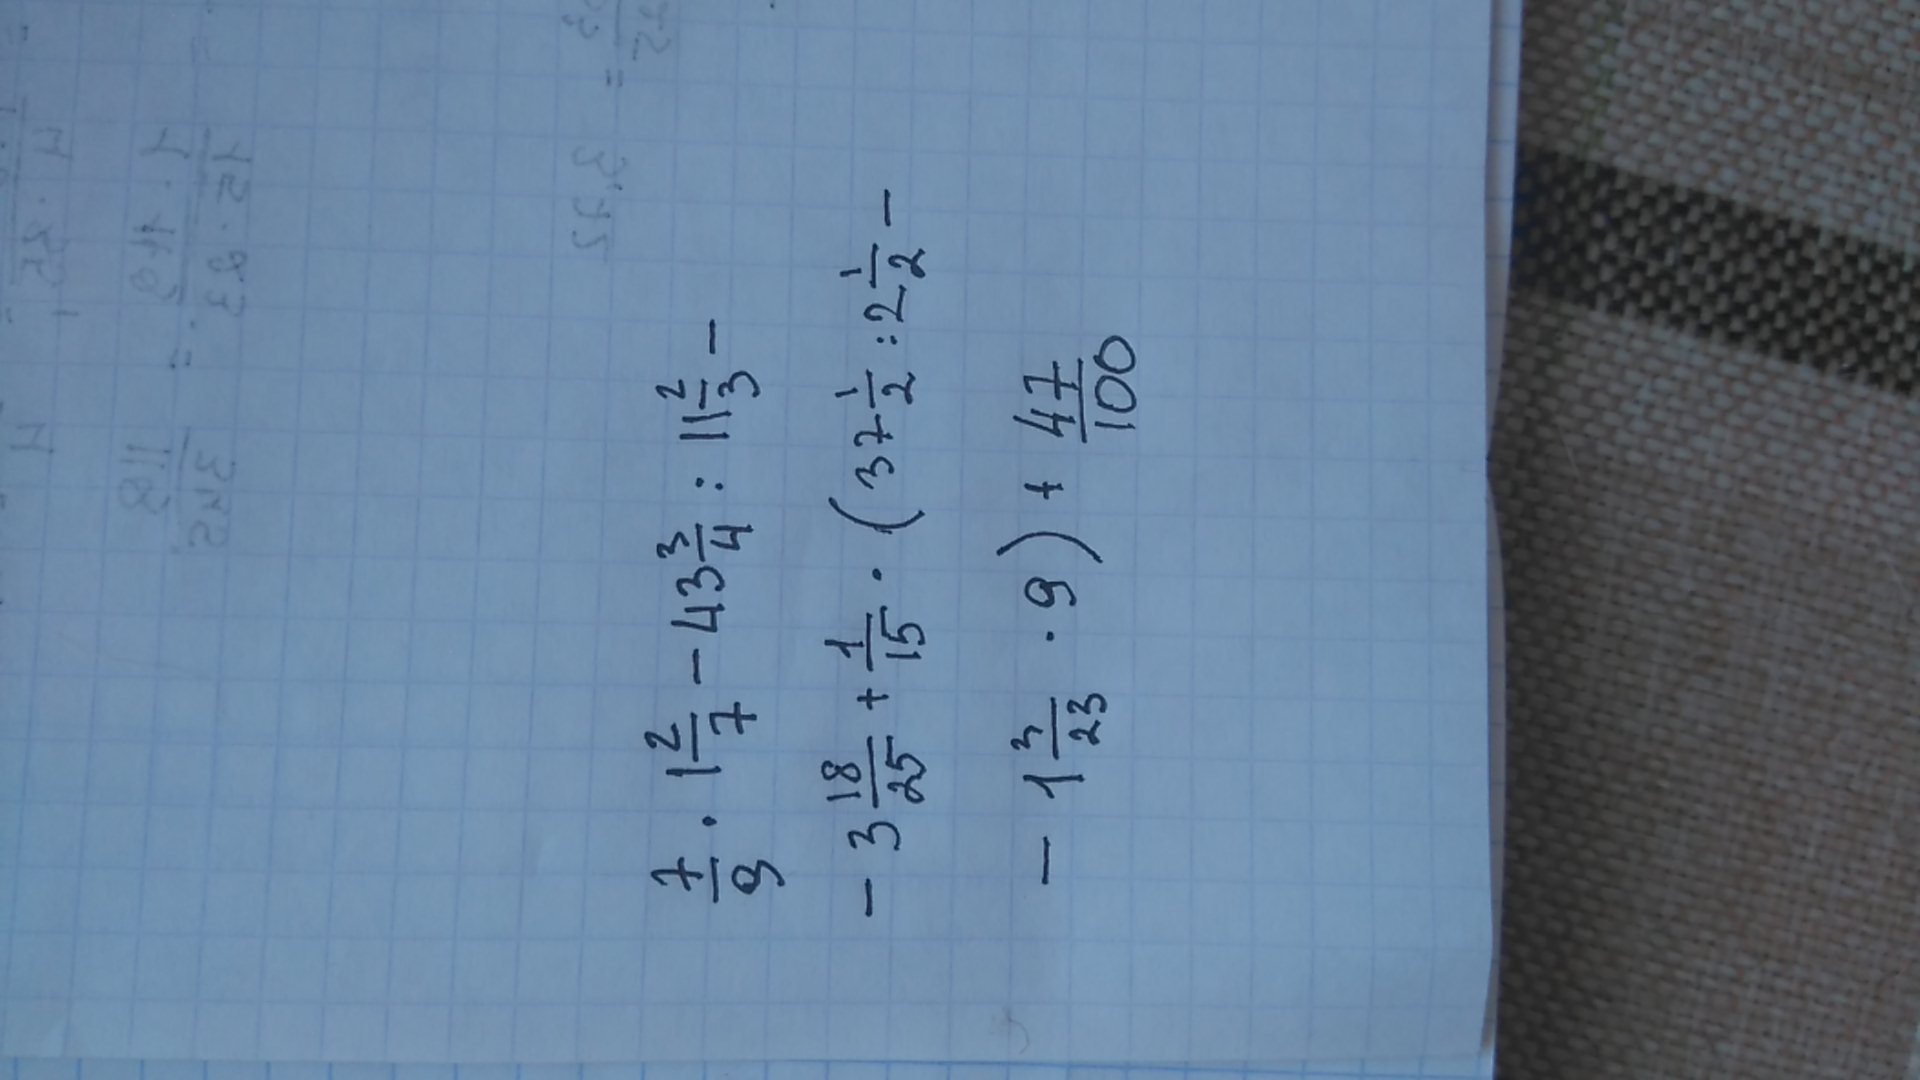 7/9 · 1 2/7 - 43 3/4 : 11 2/3 -
- 3 18/25 + 1/15 · (37 1/2 : 2 1/2 -
- 1 3/23 · 9) + 47/100